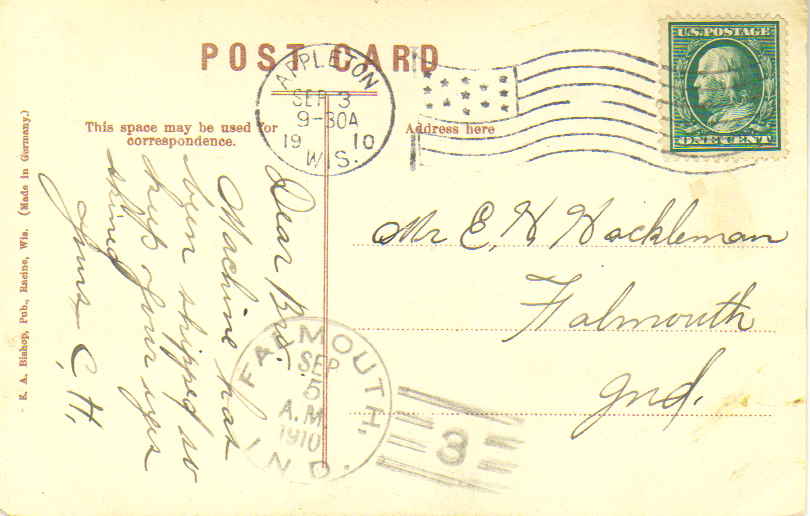 POST CARD
This space may be used for
correspondence.
Address here
APPLETON
SEP 3
9-30A
1910
WIS.
U.S. POSTAGE
ONE CENT
Mr E. H. Hackleman
Falmouth
Ind.
Dear Bro.
Machine has
been shipped so
keep your eyes
shined
Yours C. H.
FALMOUTH
SEP
5
A.M
1910
IND.
3
E. A. Bishop, Pub., Racine, Wis. (Made in Germany.)